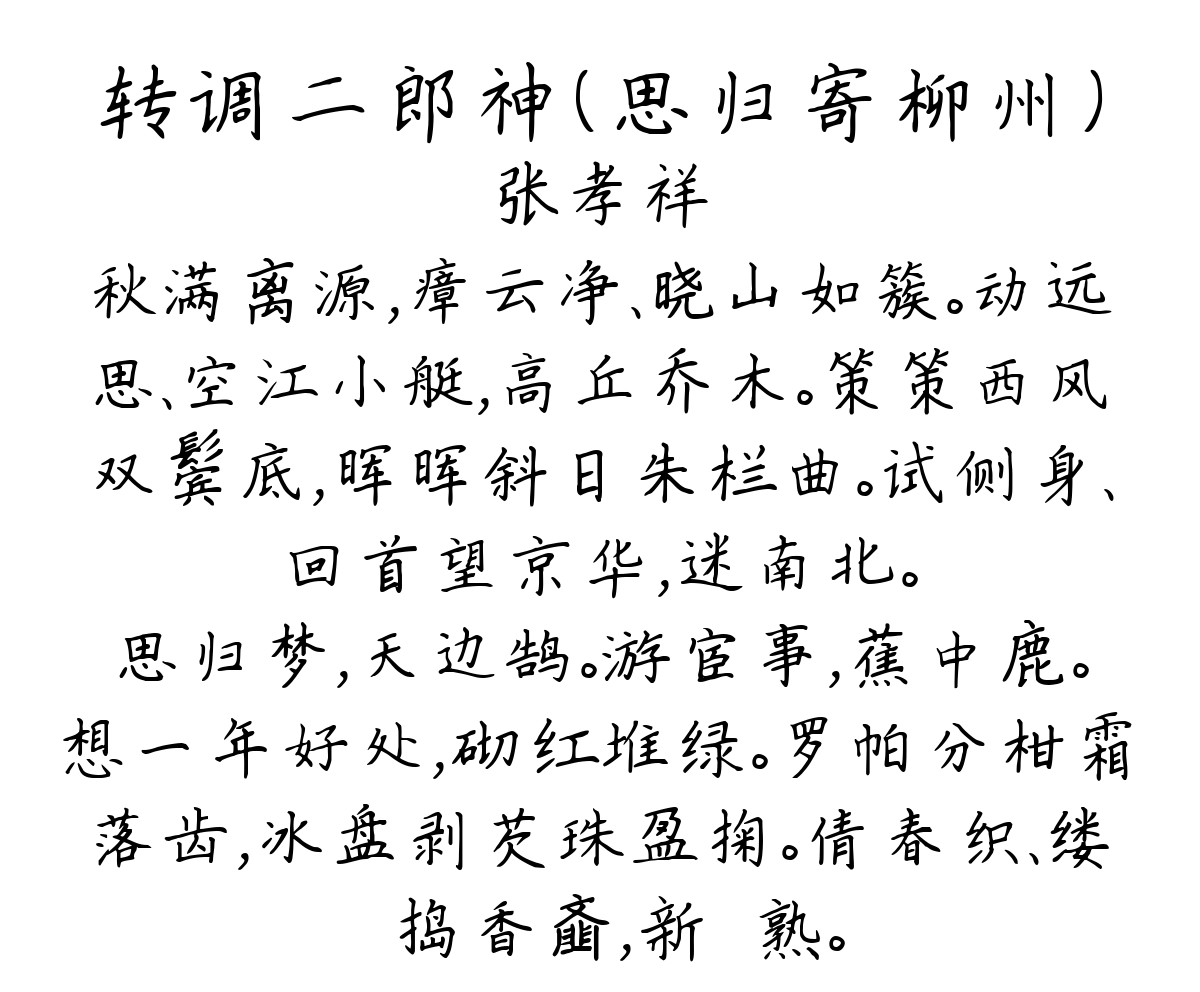 转调二郎神(思归寄柳州)
张孝祥
秋满离源,瘴云净、晓山如簇。动远
思、空江小艇,高丘乔木。策策西风
双鬓底,晖晖斜日朱栏曲。试侧身、
回首望京华,迷南北。
思归梦,天边鹄。游宦事,蕉中鹿。
想一年好处,砌红堆绿。罗帕分柑霜
落齿,冰盘剥芡珠盈掬。倩春织、缕
捣香齑,新 熟。